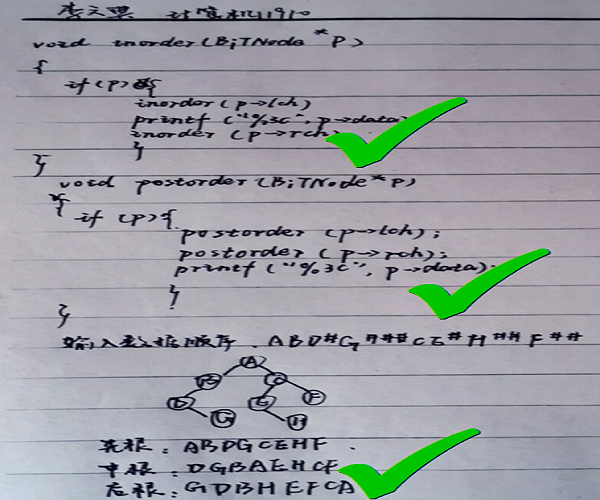 李文骐 计算机1910
void inorder(BiTNode *P)
{
if(p){
inordor(p→lch)
printf ("%3c", p→data)
inorder (p→rch)
}
}
void postorder(BiTNode*p)
{
if (p){
postorder (p→lch);
postorder (p→rch);
printf ("%3c", p→data);
}
}
输入数据顺序. ABD#G###CE#H##F##
A
B C
D E F
G H
先根: ABDGCEHF.
中根: DGBAEHCF
后根: GDBHEFCA